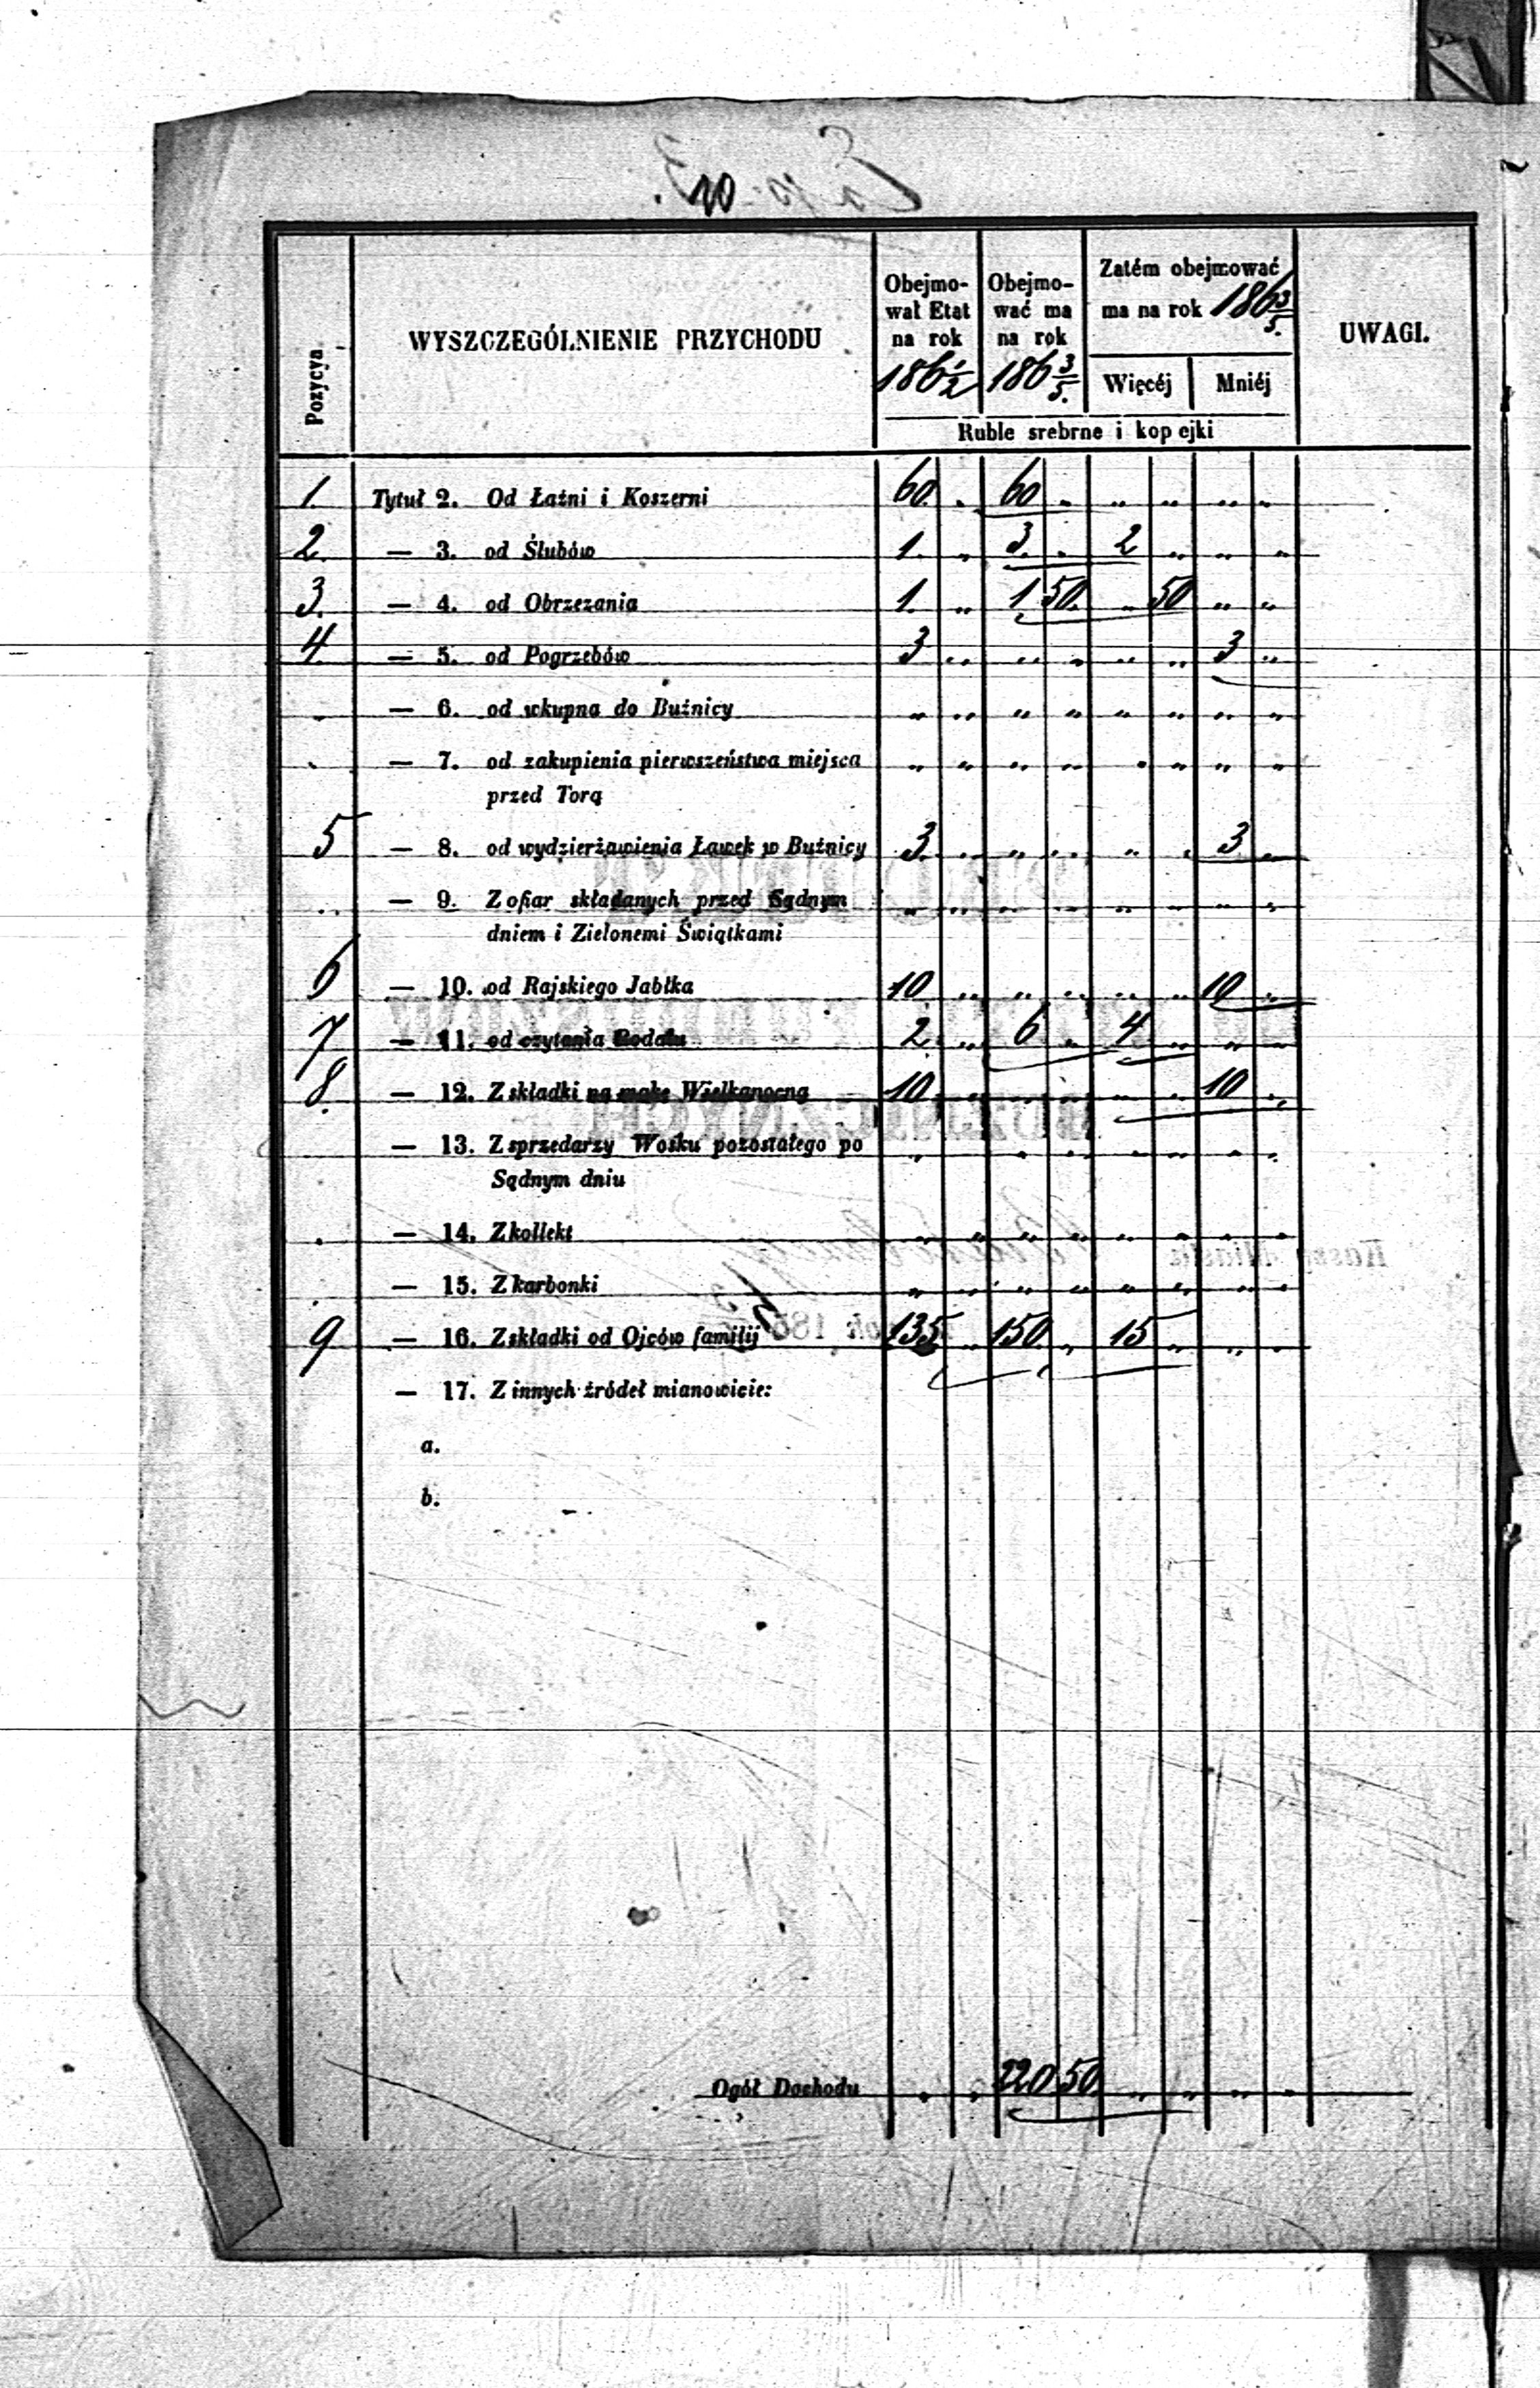 Pozycya
WYSZCZEGÓLNIENIE PRZYCHODU
Obejmo-
wał Etat
na rok
186 1/2
Obejmo-
wać ma
na rok
186 3/5.
Zatém obejmować
ma na rok 186 3/5.
Więcéj Mniéj
UWAGI.
Ruble srebrne i kopejki
1. Tytuł 2. Od Łaźni i Koszerni 60. „ 60 „ „ „ „ „
2. — 3. od Ślubów 1. „ 3. „ 2 „ „ „
3. — 4. od Obrzezania 1. „ 1 50. „ 50 „ „
4. — 5. od Pogrzebów 3 „ „ „ „ „ 3 „
— 6. od wkupna do Buźnicy „ „ „ „ „ „ „ „
— 7. od zakupienia pierwszeństwa miejsca „ „ „ „ „ „ „ „
przed Torą
5 — 8. od wydzierżawienia Ławek w Buźnicy 3. „ „ „ „ „ 3 „
— 9. Z ofiar składanych przed Sądnym „ „ „ „ „ „ „ „
dniem i Zielonemi Świątkami
6 — 10. od Rajskiego Jabłka 10 „ „ „ „ „ 10 „
7 — 11. od czytania Rodału 2. „ 6 „ 4 „ „ „
8. — 12. Z składki na mąkę Wielkanocną 10 „ „ „ „ „ 10 „
— 13. Z sprzedarzy Wosku pozostałego po „ „ „ „ „ „ „
Sądnym dniu
— 14. Z kollekt „ „ „ „ „ „ „ „
— 15. Z karbonki „ „ „ „ „ „ „ „
9 — 16. Z składki od Ojców familij 135 „ 150 „ 15 „ „ „
— 17. Z innych źródeł mianowicie:
a.
b.
Ogół Dochodu „ „ 220 50 „ „ „ „